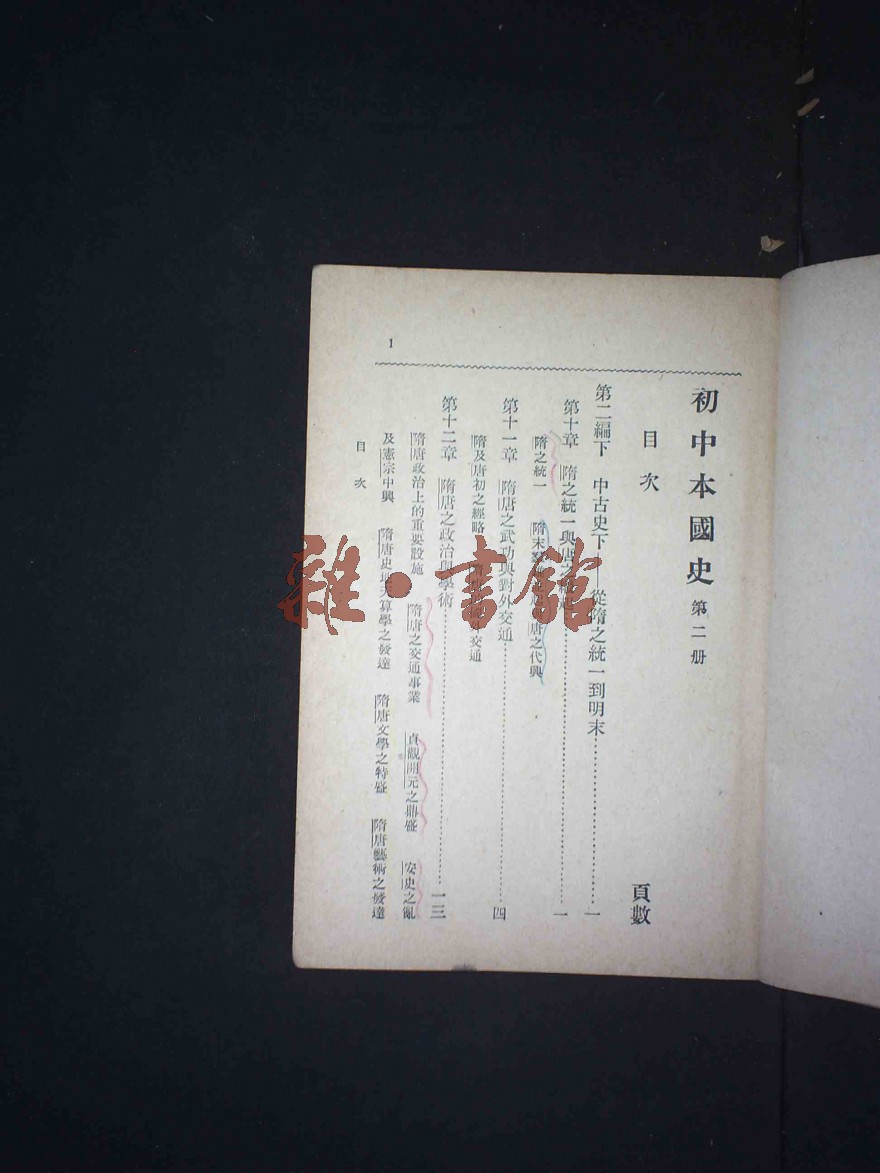 初中本國史 第二册
目次
頁數
第二編下 中古史下——從隋之統一到明末……一
第十章 隋之統一與唐之……一
隋之統一 隋末 唐之代興
第十一章 隋唐之武功與對外交通……四
隋及唐初之經略 交通
第十二章 隋唐之政治與學術……一三
隋唐政治上的重要設施 隋唐之交通事業 貞觀開元之鼎盛 安史之亂
及憲宗中興 隋唐史地天算學之發達 隋唐文學之特盛 隋唐藝術之發達
目次
1
雜·書館